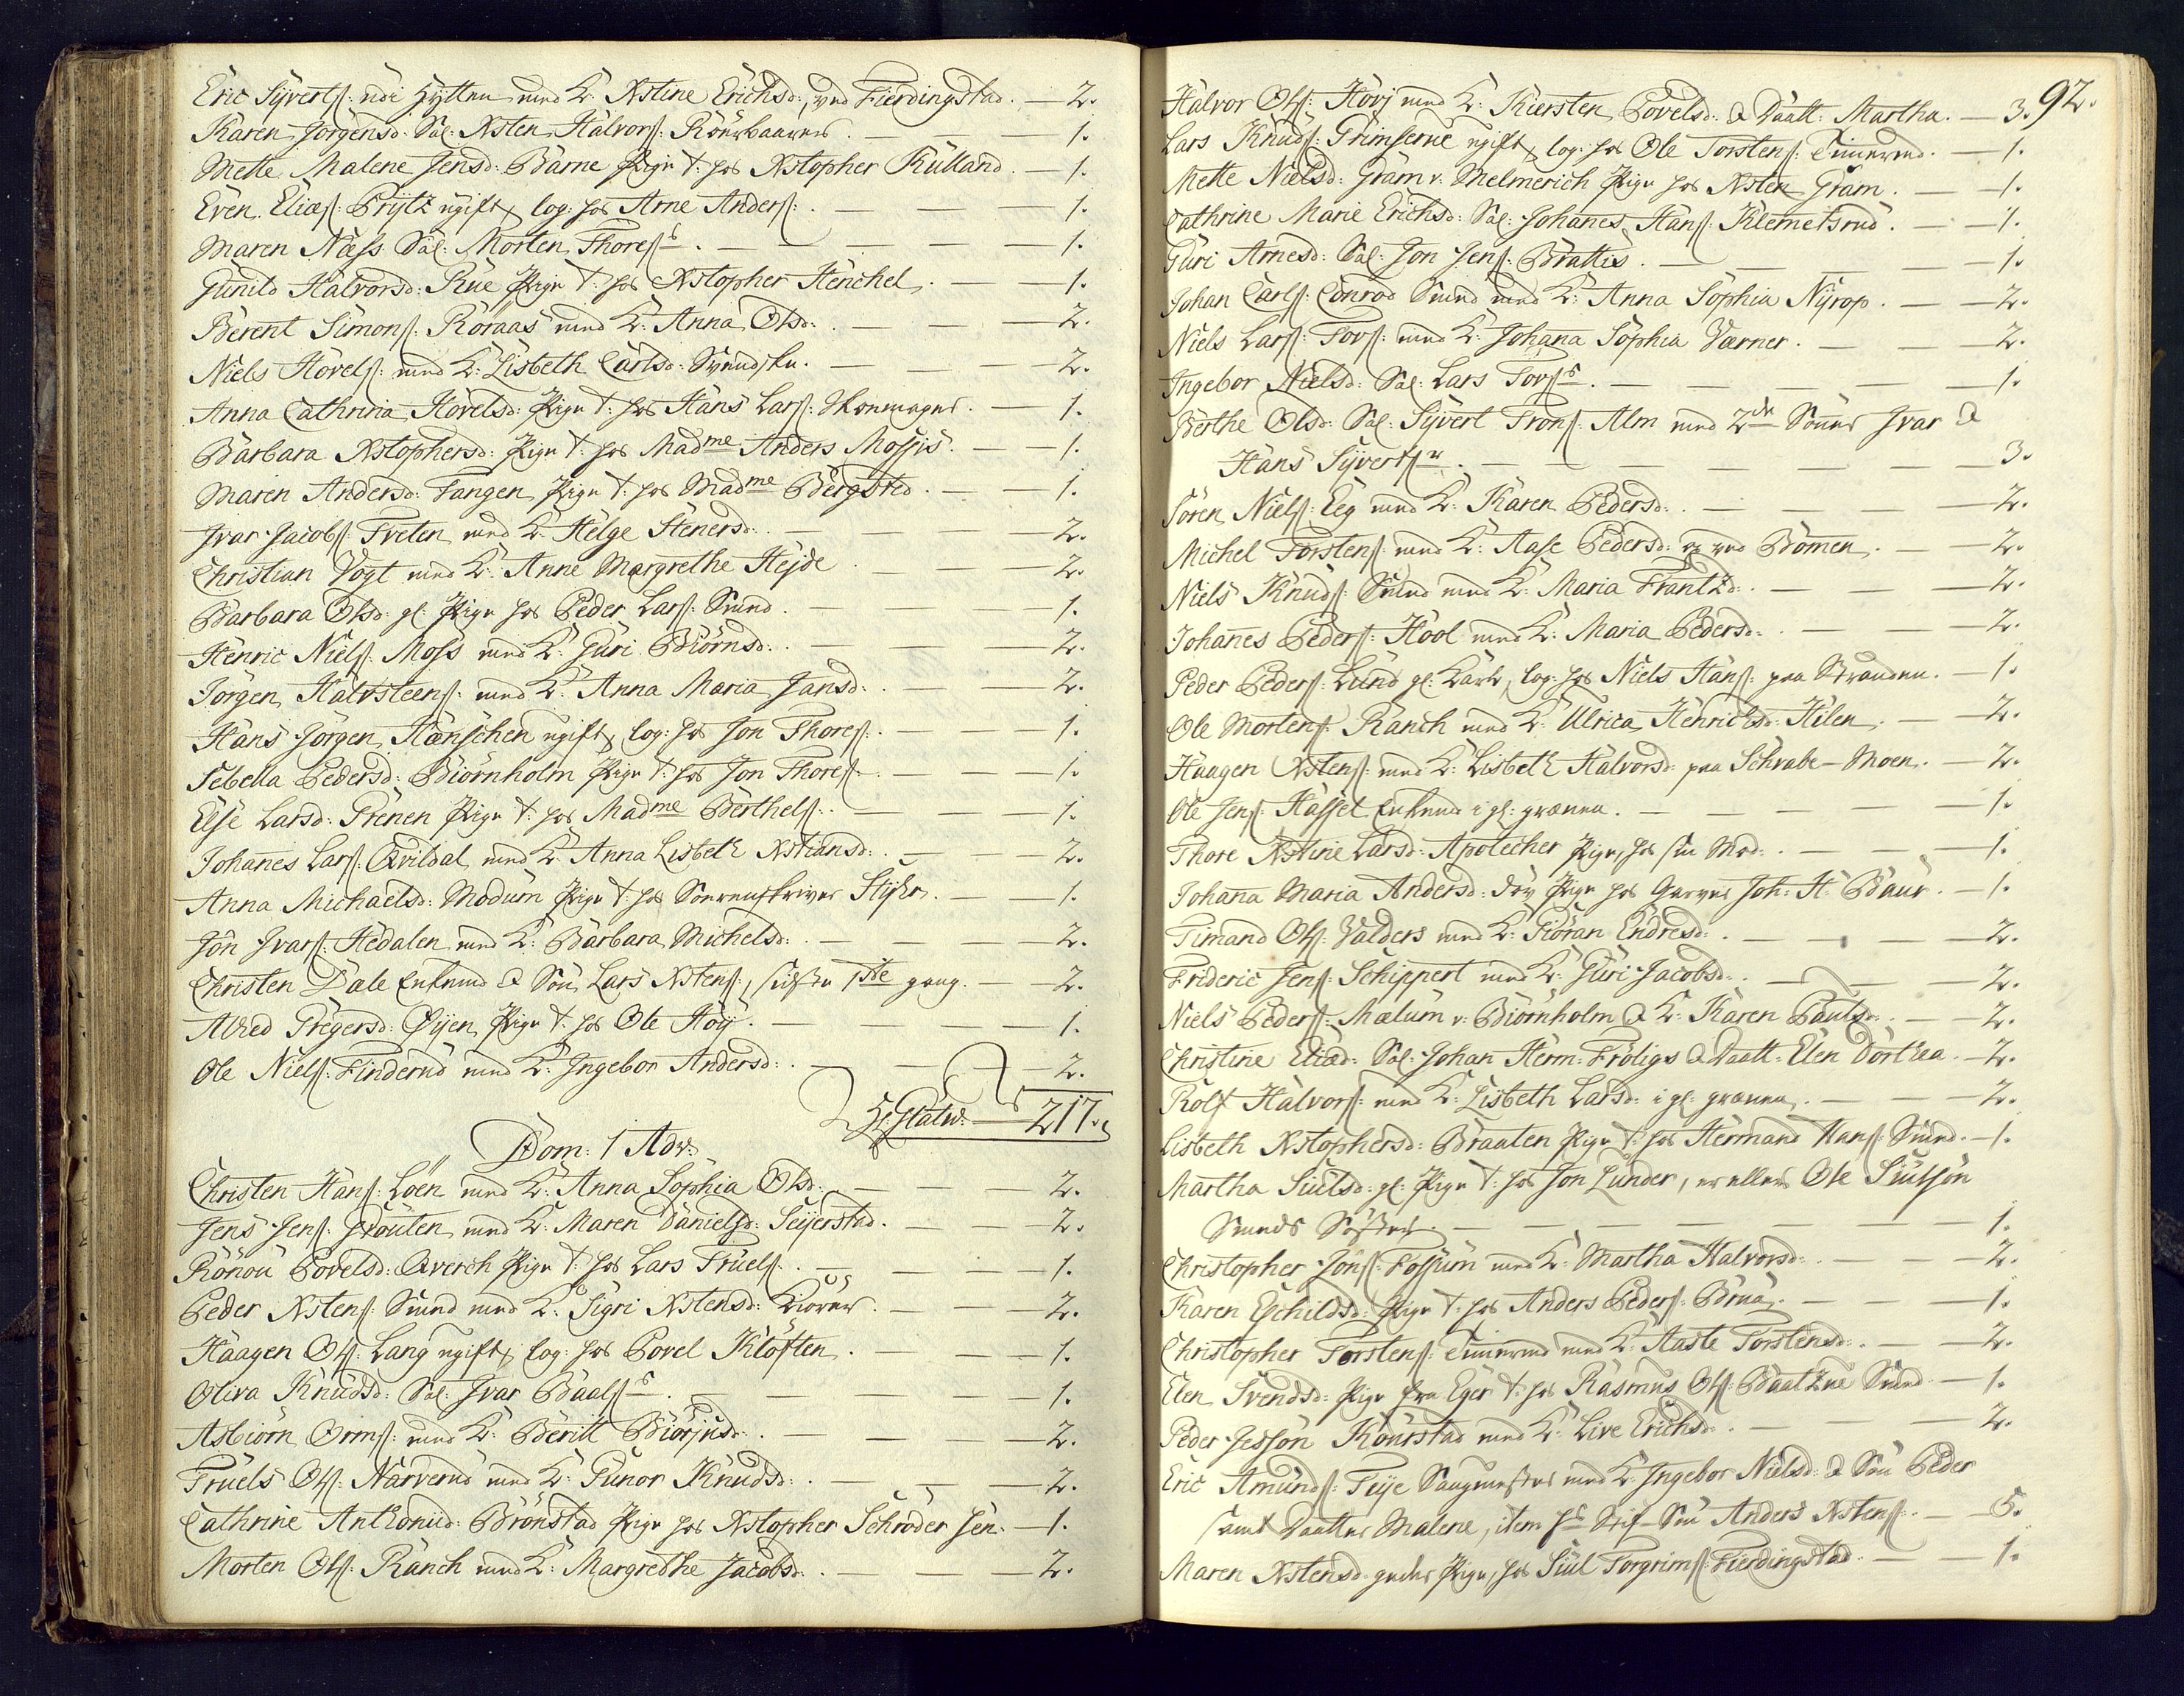 Eric Syverts: udi Hytten med K: Xstine Erichsd:, ved Fierdingstad. — 2.
Karen Jörgensd: Sal: Xsten Halvors: — 1.
Mette Malene Jensd: Barne Pige t: hos Xstopher Kulland. — 1.
Even Elias: Prytz ugift, log: hos Arne Anders: — 1.
Maren Næss Sal: Morten Thores: — 1.
Gunild Halvorsd: Rue Pige t: hos Xstopher Henchel. — 1.
Berent Simons: Röraas med K: Anna Olsd: — 2.
Niels Hovels: med K: Lisbeth Carlsd: Svendske. — 2.
Anna Cathrina Hovelsd: Pige t: hos Hans Lars: — 1.
Barbara Xstophersd: Pige t: hos Madme Anders Mossis. — 1.
Maren Andersd: Tangen Pige t: hos Madme Bergsted. — 1.
Ivar Jacobs: Treten med K: Helge Stenersd: — 2.
Christian Vogt med K: Anne Margrethe Hejde — 2.
Barbara Olsd: gl: Pige hos Peder Lars: Smed. — 1.
Henric Niels: Moss med K: Guri Biörnsd: — 2.
Jörgen Halvsteens: med K: Anna Maria Jansd: — 2.
Hans Jörgen Hænschen ugift, log: hos Jon Thores: — 1.
Sebella Pedersd: Biörnholm Pige t: hos Jon Thores: — 1.
Else Larsd: Grenen Pige t: hos Madme Berthels: — 1.
Johanes Lars: Qvildal med K: Anna Lisbeth Xstiansd: — 2.
Anna Michaelsd: Modum Pige t: hos Sorenskriver — 1.
Jon Ivars: Hedalen med K: Barbara Michelsd: — 2.
Christen Dale Enkemd & Sön Lars Xstens:, sidste 1ste gang. — 2.
Alhed Gregersd: Öyen Pige t: hos Ole Höy. — 1.
Ole Niels: Finderud med K: Ingebor Andersd: — 2.
217.
Dom: 1 Adv:
Christen Hans: Löen med K: Anna Sophia Olsd: — 2.
Jens Jens: med K: Maren Danielsd: Seyerstad. — 2.
Rönou Povelsd: Qverch Pige t: hos Lars Truels: — 1.
Peder Xstens: Smed med K: Sigri Xstensd: — 2.
Haagen Ols: Lang ugift, log: hos Povel Klöften. — 1.
Oliva Knudsd: Sal: Ivar Baals: — 1.
Asbiörn Orms: med K: Beritt — 2.
Truels Ols: Narverud med K: Gunor Knudsd: — 2.
Cathrine Anthonied: Brönstad Pige hos Xstopher Schröder sen. — 1.
Morten Ols: Ranch med K: Margrethe Jacobsd: — 2.
92.
Halvor Ols: Hövj med K: Kiersten Povelsd: & Daatt: Martha. — 3.
Lars Knuds: Grimserue ugift, log: hos Ole Torstens: Timermd. — 1.
Mette Nielsd: Gram v: Melmerich Pige hos Xsten Gram. — 1.
Cathrine Marie Erichsd: Sal: Johanes Hans: Klemetsrud. — 1.
Guri Arnesd: Sal: Jon Jens: Brattis. — 1.
Johan Carls: Conrad Smed med K: Anna Sophia Nyrop. — 2.
Niels Lars: Tors: med K: Johana Sophia Værner. — 2.
Ingebor Nielsd: Sal: Lars Tors: — 1.
Berthe Olsd: Sal: Syvert Trons: Alm med 2de Sönner Ivar &
Hans Syverts: — 3.
Sören Niels: Eeg med K: Karen Pedersd: — 2.
Michel Torstens: med K: Aase Pedersd: ved Bomen. — 2.
Niels Knuds: Smed med K: Maria Frantzd: — 2.
Johanes Peders: Hool med K: Maria Pedersd: — 2.
Peder Peders: Lund gl: Karl, log: hos Niels Hans: paa Stranden. — 1.
Ole Mortens: Ranch med K: Ulrica Henrichsd: Hilen. — 2.
Haagen Xstens: med K: Lisbeth Halvorsd: paa Schrabe-Moen. — 2.
Ole Jens: Hassel Enkemd i gl: grænen. — 1.
Thore Xstine Larsd: Apotecher Pige, hos sin Mod: — 1.
Johana Maria Andersd: döv Pige hos Garver Joh: H: Baur. — 1.
Timand Ols: Valders med K: Giöran Endresd: — 2.
Frideric Jens: Schippert med K: Guri Jacobsd: — 2.
Niels Peders: Mælum v: Biörnholm & K: Karen Paulsd: — 2.
Christine Eliæd: Sal: Johan Herm: Fröligs & Daatt: Elen Dorthea. — 2.
Rolf Halvors: med K: Lisbeth Larsd: i gl: grænen. — 2.
Lisbeth Xstophersd: Braaten Pige t: hos Hermand Hans: Smed. — 1.
Martha Siulsd: gl: Pige t: hos Jon Lunder, er ellers Ole Siulsön
Smeds Söster. — 1.
Christopher Jons: Fossum med K: Martha Halvorsd: — 2.
Karen Eschildsd: Pige t: hos Anders Peders: Brua. — 1.
Christopher Torstens: Timermd med K: Aaste Torstensd: — 2.
Elen Svendsd: Pige fra Eger t: hos Rasmus Ols: Smed — 1.
Peder Jessön Kourstad med K: Live Erichsd: — 2.
Eric Amunds: Teije Saugmester med K: Ingebor Nielsd: & Sön Peder
samt Daatter Malene, item hs Stif-Sön Anders Xstens: — 5.
Maren Xstensd: Pige, hos Siul Torgrims: Fierdingstad. — 1.